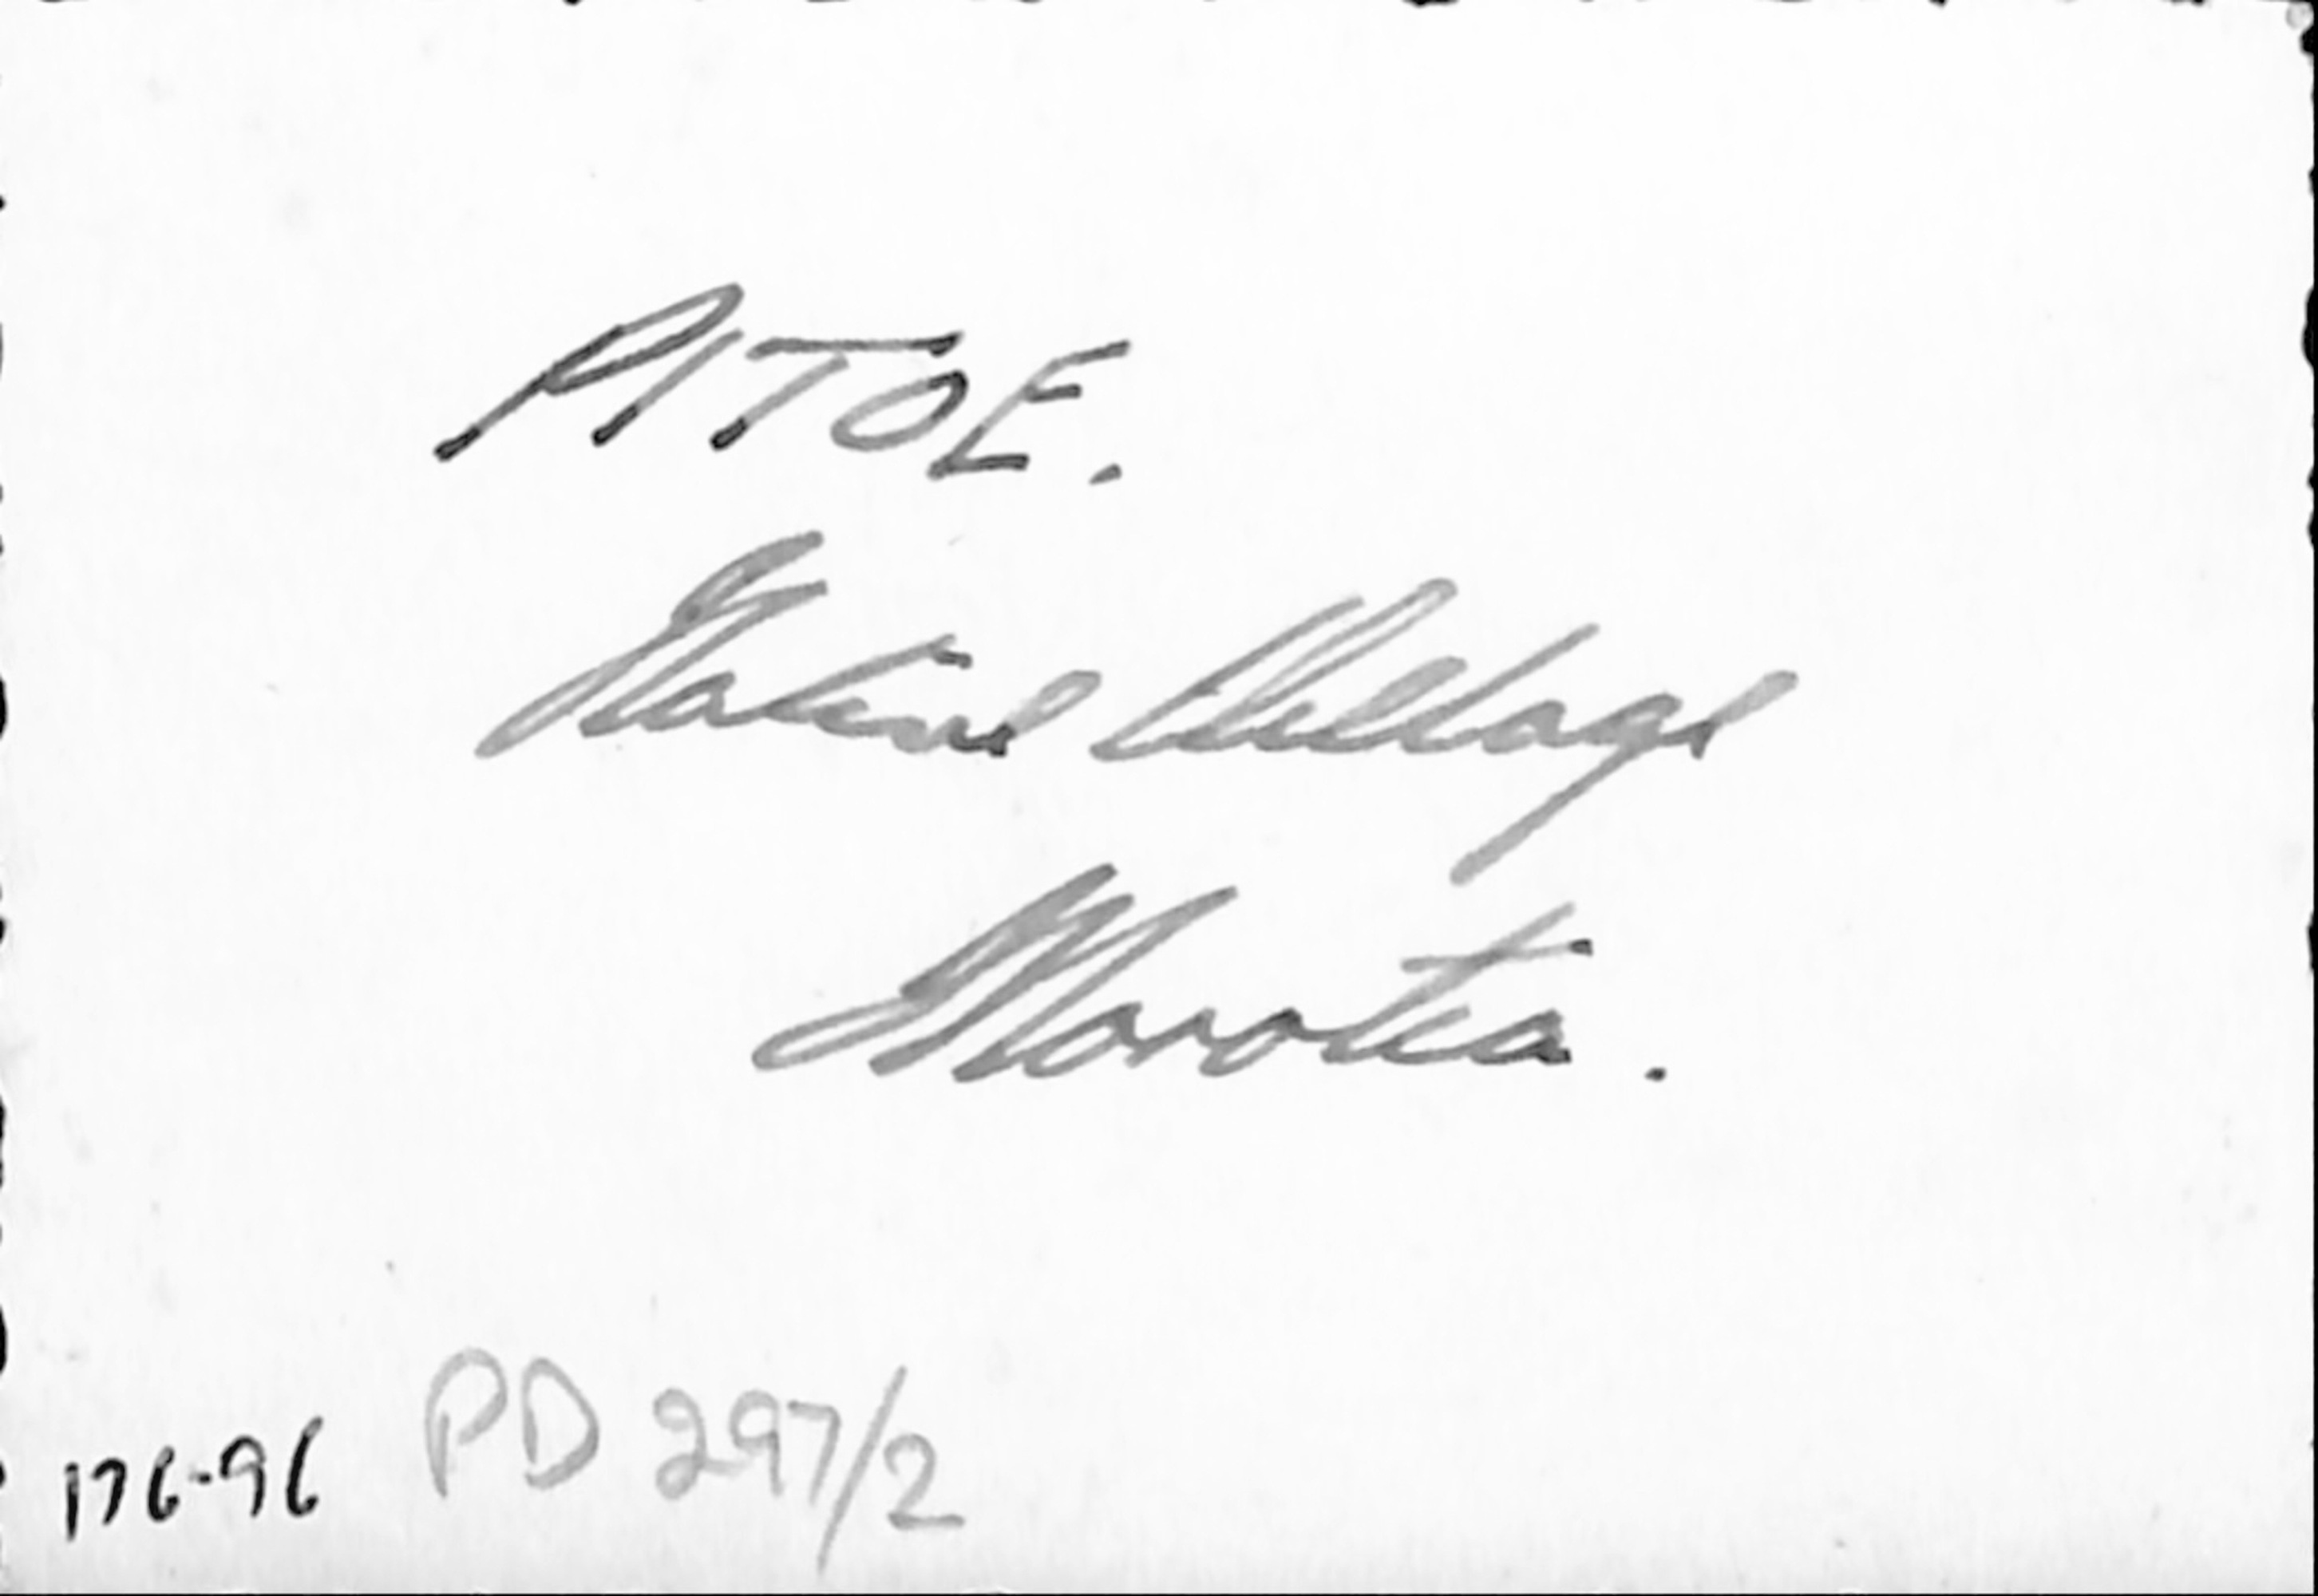 PITOE.
Native Village
Morotia.
176-96 PD 297/2